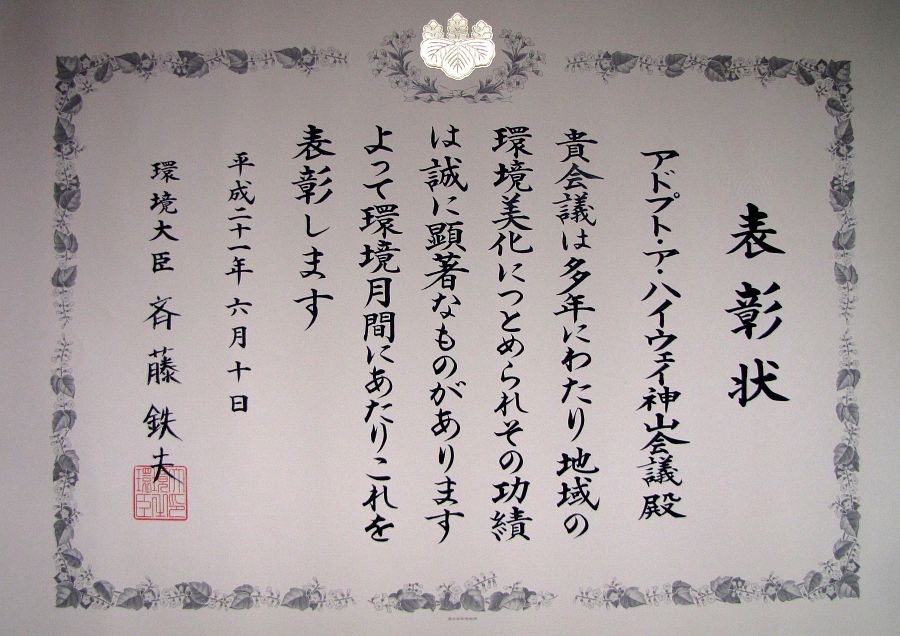 表彰状
アドプト・ア・ハイウェイ神山会議殿
貴会議は多年にわたり地域の
環境美化につとめられその功績
は誠に顕著なものがあります
よって環境月間にあたりこれを
表彰します
平成二十一年六月十日
環境大臣 斉藤鉄夫